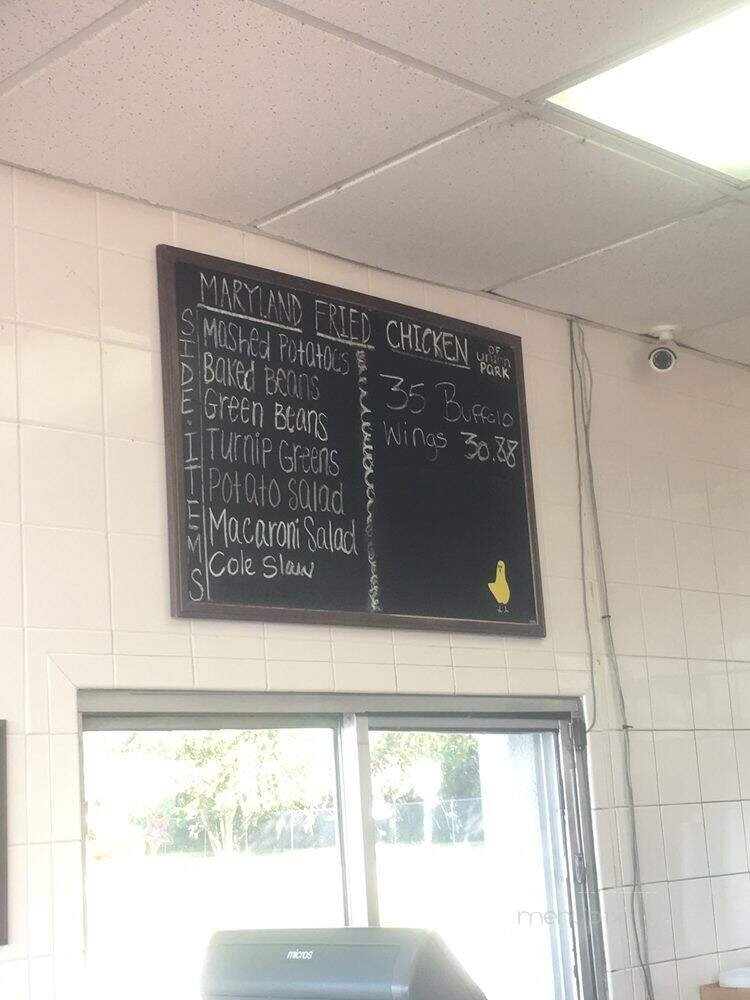 MARYLAND FRIED CHICKEN OF UNION PARK
SIDE ITEMS
Mashed Potatoes
Baked Beans
Green Beans
Turnip Greens
Potato Salad
Macaroni Salad
Cole Slaw
35 Buffalo
Wings 30.88
micros